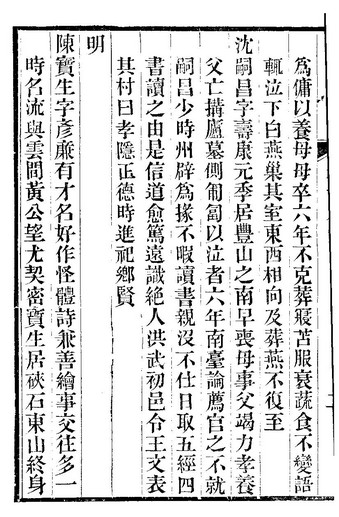 爲傭以養母母卒六年不克葬寢苫服衰蔬食不變語
輒泣下白燕巢其室東西相向及葬燕不復至
沈嗣昌字壽康元季居豐山之南早喪母事父竭力孝養
父亡搆廬墓側匍匐以泣者六年南臺論薦官之不就
嗣昌少時州辟爲掾不暇讀書親沒不仕日取五經四
書讀之由是信道愈篤遠識絕人洪武初邑令王文表
其村曰孝隱正德時進祀鄉賢
明
陳寶生字彥廉有才名好作怪體詩兼善繪事交往多一
時名流與雲間黃公望尤契密寶生居硤石東山終身